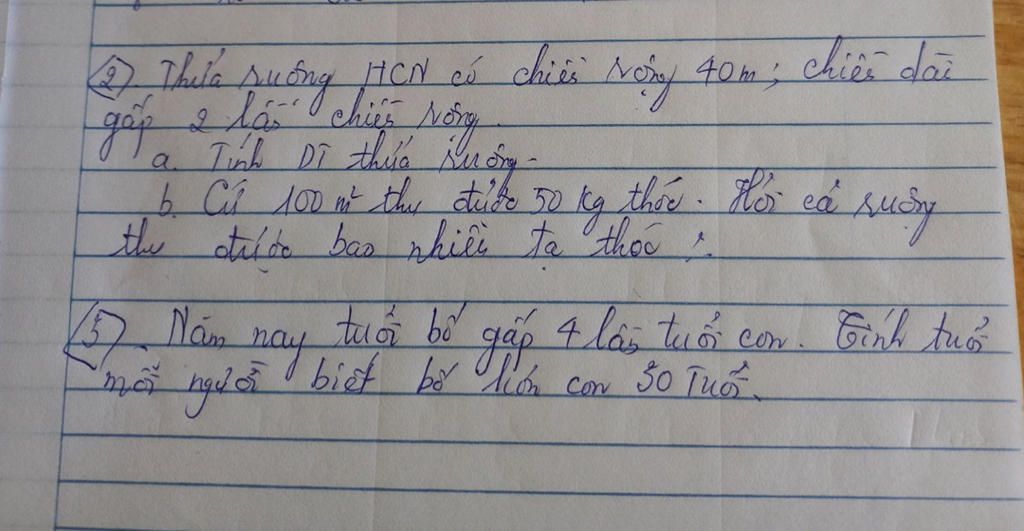 2). Thửa ruộng HCN có chiều rộng 40m; chiều dài
gấp 2 lần chiều rộng.
a. Tính DT thửa ruộng.
b. Cứ 100 m² thu được 50 kg thóc. Hỏi cả ruộng
thu được bao nhiêu tạ thóc?
5). Năm nay tuổi bố gấp 4 lần tuổi con. Tính tuổi
mỗi người biết bố hơn con 30 Tuổi.